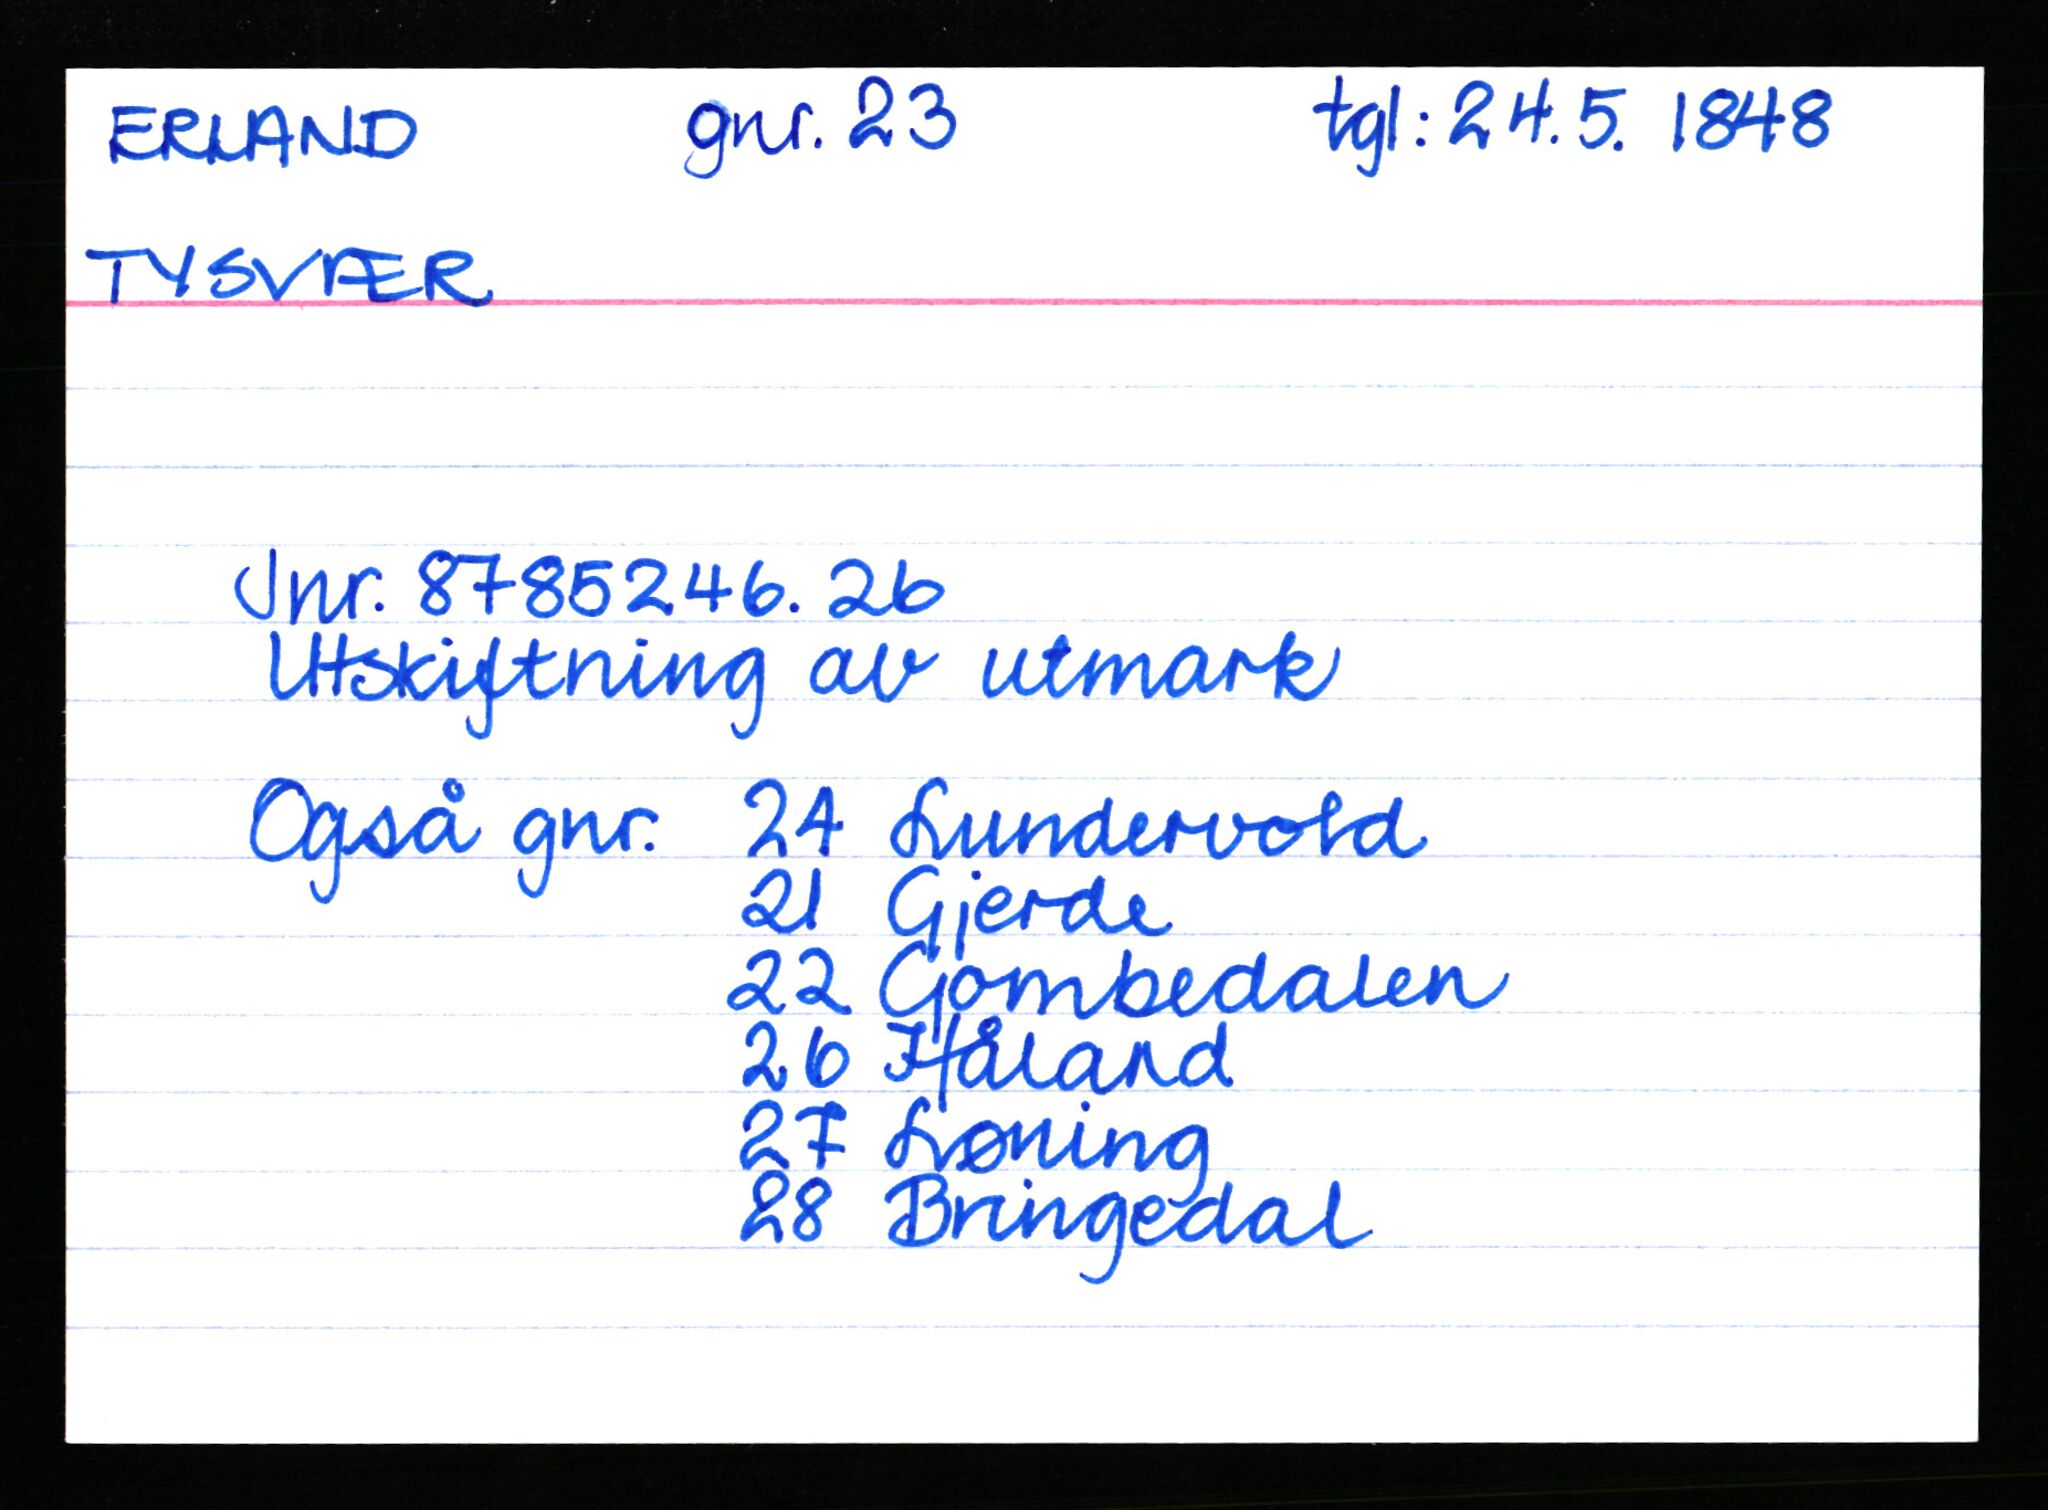 ERLAND gnr. 23 tgl: 24.5. 1848
TYSVÆR
Jnr. 8785246.26
Utskiftning av utmark
Også gnr. 24 Lundervold
21 Gjerde
22 Gombedalen
26 Håland
27 Løning
28 Bringedal